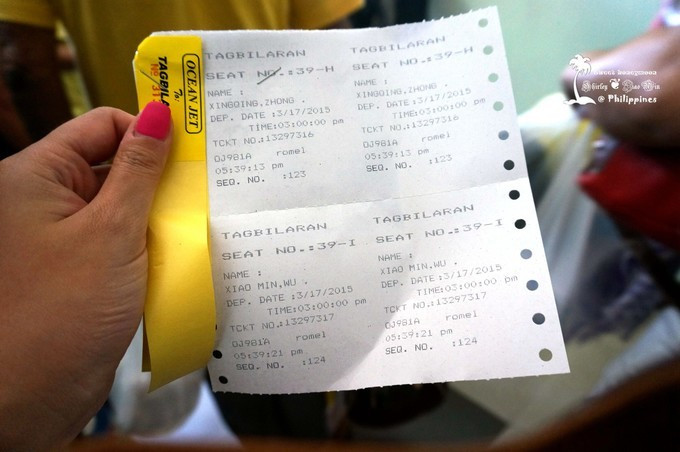 OCEAN JET
TO:
TAGBILA
No 31
TAGBILARAN
SEAT NO.:39-H
NAME :
XINGQING,ZHONG .
DEP. DATE :3/17/2015
TIME:03:00:00 pm
TCKT NO.:13297316
OJ981A romel
05:39:13 pm
SEQ. NO. :123
TAGBILARAN
SEAT NO.:39-H
NAME :
XINGQING,ZHONG .
DEP. DATE :3/17/2015
TIME:03:00:00 pm
TCKT NO.:13297316
OJ981A romel
05:39:13 pm
SEQ. NO. :123
TAGBILARAN
SEAT NO.:39-I
NAME :
XIAO MIN,WU .
DEP. DATE :3/17/2015
TIME:03:00:00 pm
TCKT NO.:13297317
OJ981A romel
05:39:21 pm
SEQ. NO. :124
TAGBILARAN
SEAT NO.:39-I
NAME :
XIAO MIN,WU .
DEP. DATE :3/17/2015
TIME:03:00:00 pm
TCKT NO.:13297317
OJ981A romel
05:39:21 pm
SEQ. NO. :124
@ Philippines